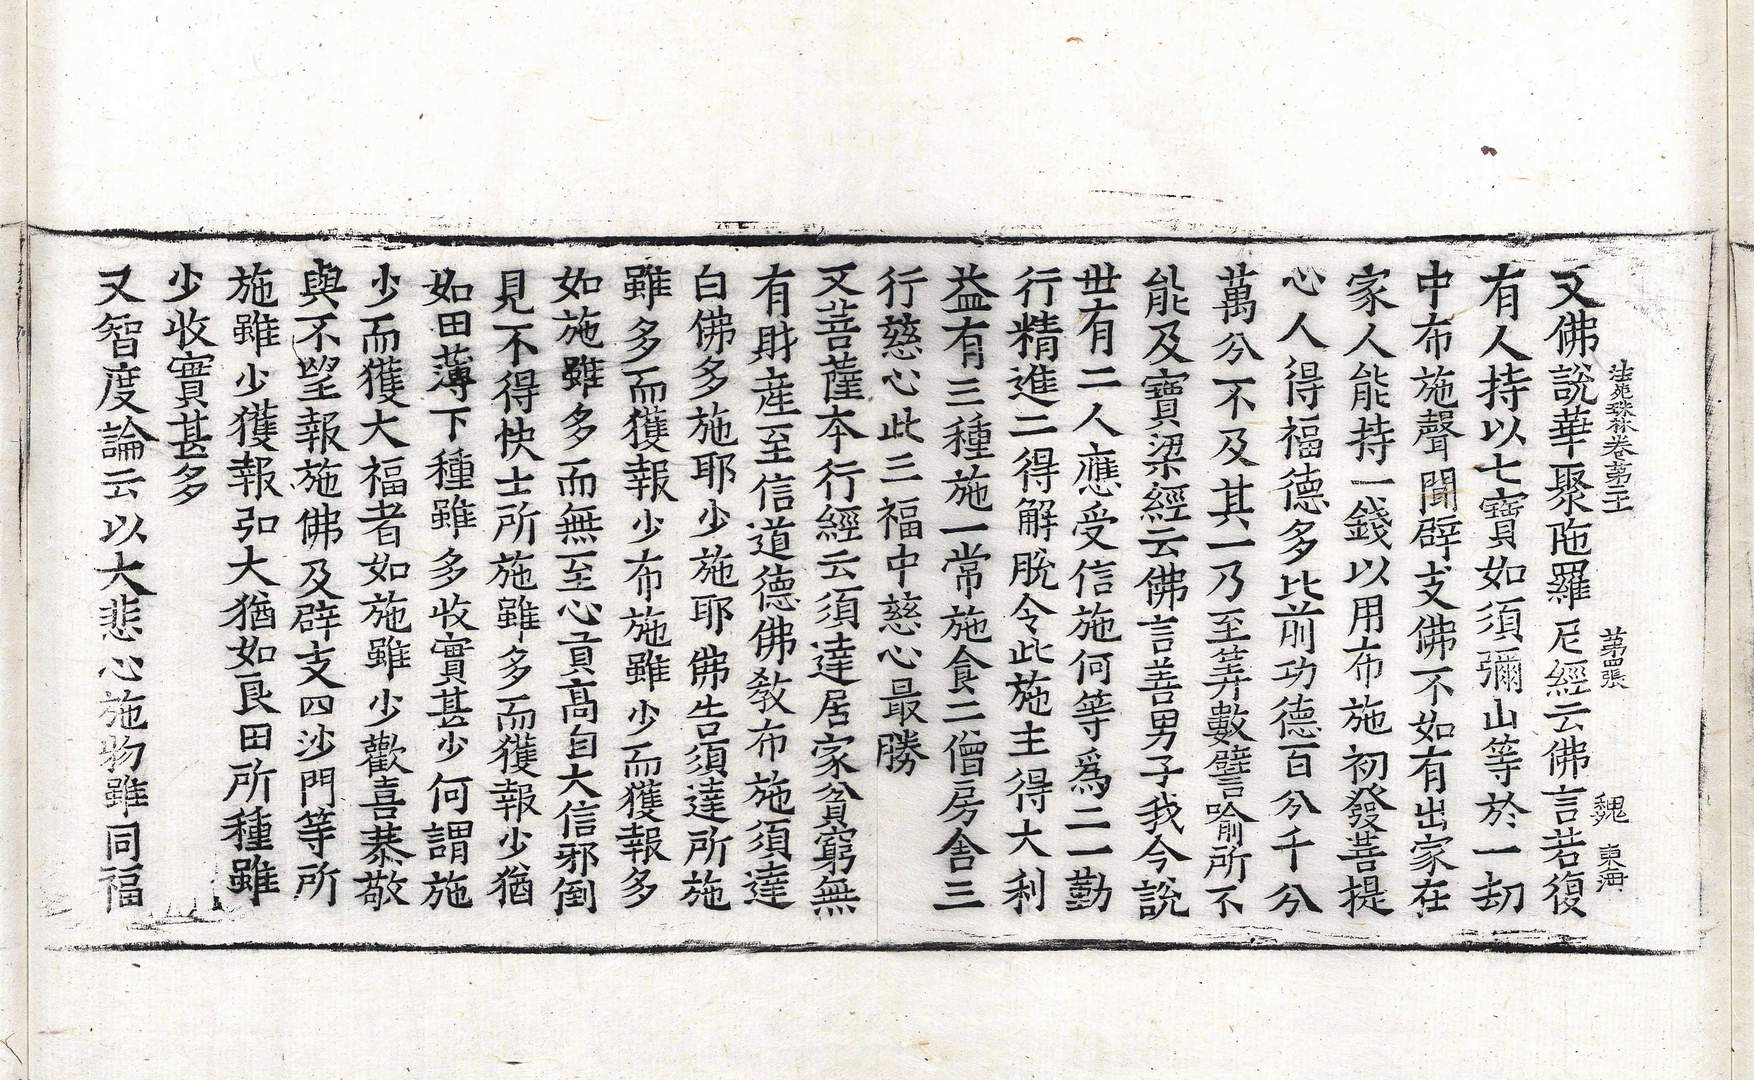 法苑珠林卷第八十一 第四張 魏 東海
又佛說華聚陁羅尼經云佛言若復
有人持以七寶如須彌山等於一劫
中布施聲聞辟支佛不如有出家在
家人能持一錢以用布施初發菩提
心人得福德多比前功德百分千分
萬分不及其一乃至筭數譬喻所不
能及寶梁經云佛言善男子我今說
世有二人應受信施何等為二一勤
行精進二得解脫今此施主得大利
益有三種施一常施食二僧房舍三
行慈心此三福中慈心最勝
又菩薩本行經云須達居家貧窮無
有財產至信道德佛教布施須達
白佛多施耶少施耶佛告須達所施
雖多而獲報少布施雖少而獲報多
如施雖多而無至心貢高自大信邪倒
見不得快士所施雖多而獲報少猶
如田薄下種雖多收實甚少何謂施
少而獲大福者如施雖少歡喜恭敬
與不望報施佛及辟支四沙門等所
施雖少獲報弘大猶如良田所種雖
少收實甚多
又智度論云以大悲心施物雖同福